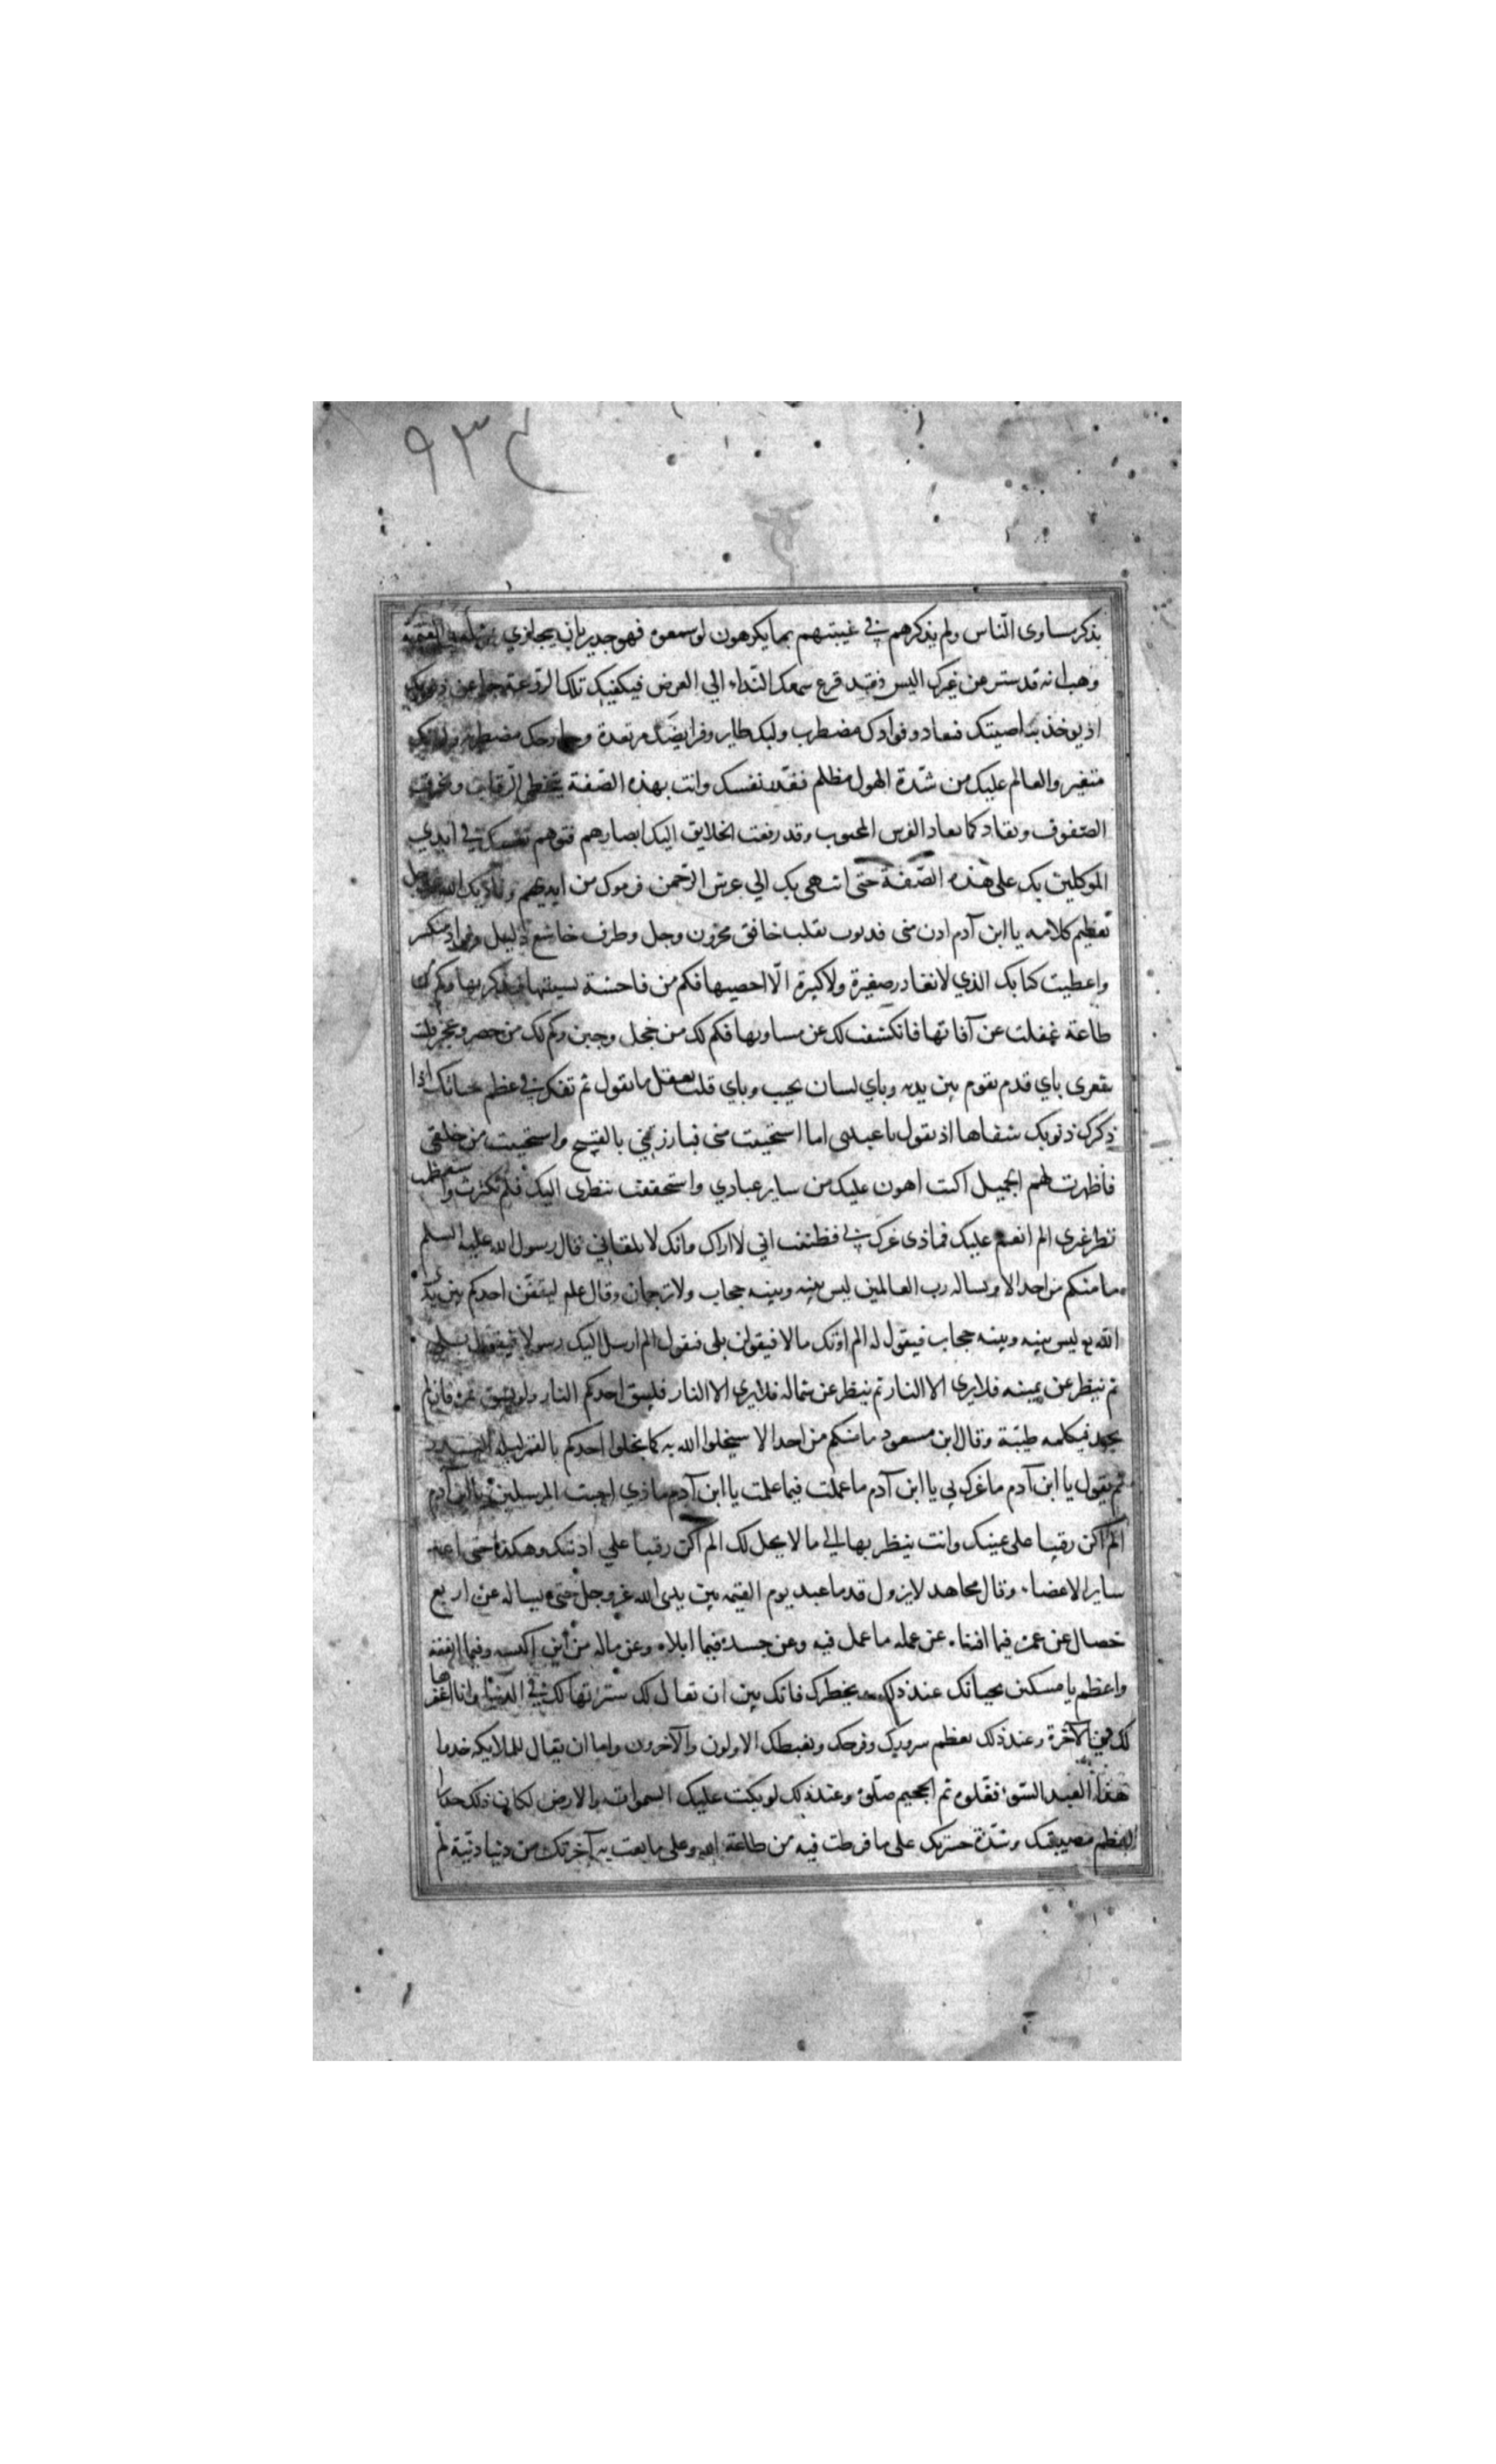 ٩٣٤
يذكر مساوى الناس ولم يذكرهم في غيبتهم بما يكرهون لو سمعوه فهو جدير بان يجازي
وهب انه قد ستر عن غيرك اليس قد قرع سمعك النداء الي العرض فيكفيك تلك الروعة جزاء عن ذنوبك
اذ يوخذ بناصيتك فتقاد وفوادك مضطرب ولبك طاير وفرايضك مرتعدة وجوارحك مضطربة
متغير والعالم عليك من شدة الهول مظلم فقدر نفسك وانت بهذه الصفة تتخطي الرقاب وتخرق
الصفوف وتقاد كما تقاد الفرس المجنوب وقد رفعت الخلايق اليك ابصارهم فتوهم نفسك في ايدي
الموكلين بك على هذه الصفة حتى انتهى بك الي عرش الرحمن فرموك من ايديهم وناديك الله
تعظيم كلامه يا ابن آدم ادن مني فدنوت بقلب خافق محزون وجل وطرف خاشع ذليل وفواد منكسر
واعطيت كتابك الذي لا تغادر صغيرة ولا كبيرة الا احصيها فكم من فاحشة نسيتها فتذكرتها وكم من
طاعة غفلت عن آفاتها فانكشفت لك عن مساويها فكم لك من خجل وجبن وكم لك من حصر وعجز فليت
شعرى باي قدم تقوم بين يديه وباي لسان تجيب وباي قلب تعقل ما تقول ثم تفكر في عظم حيائك اذا
ذكرك ذنوبك شفاها اذ يقول يا عبدى اما استحييت منى فبارزتني بالقبيح واستحييت من خلقي
فاظهرت لهم الجميل اكنت اهون عليك من ساير عبادي واستخففت بنظرى اليك فلم تكترث واستعظمت
نظر غيرى الم انعم عليك فماذى غرك بي فظننت اني لا اراك وانك لا تلقاني قال رسول الله عليه السلم
ما منكم من احد الا ويساله رب العالمين ليس بينه وبينه حجاب ولا ترجمان وقال علم ليقفن احدكم بين يدى
الله تع ليس بينه وبينه حجاب فيقول له الم اؤتك مالا فيقولن بلى فيقول الم ارسل اليك رسولا فيقول بلى
ثم ينظر عن يمينه فلا يري الا النار ثم ينظر عن شماله فلا يري الا النار فليتق احدكم النار ولو بشق تمرة فان لم
يجد فبكلمه طيبة وقال ابن مسعود ما منكم من احد الا سيخلوا الله به كما يخلوا احدكم بالقمر ليلة البدر
ثم يقول يا ابن آدم ما غرك بي يا ابن آدم ما عملت فيما علمت يا ابن آدم ماذي اجبت المرسلين يا ابن آدم
الم اكن رقيبا على عينيك وانت ينظر بها الي ما لا يحل لك الم اكن رقيبا علي اذنيك وهكذا حتى اعد
ساير الاعضاء وقال مجاهد لا يزول قدما عبد يوم القيمه بين يدى الله عز وجل حتى يساله عن اربع
خصال عن عمره فيما افناه عن عمله ما عمل فيه وعن جسده فيما ابلاه وعن ماله من اين اكتسبه وفيما انفقه
واعظم يا مسكين بحيائك عند ذلك بخطرك فانك بين ان تقال لك سترتها لك في الدنيا وانا اغفرها
لك في الآخرة وعند ذلك يعظم سرورك وفرحك ويغبطك الاولون والآخرون واما ان يقال للملايكه خذوا
هذا العبد السوء فغلوه ثم الجحيم صلوه وعند ذلك لو بكت عليك السموات والارض لكان ذلك جديرا
لعظم مصيبتك وشدة حسرتك على ما فرطت فيه من طاعة الله وعلى ما بعت به آخرتك من دنيا دنية لم